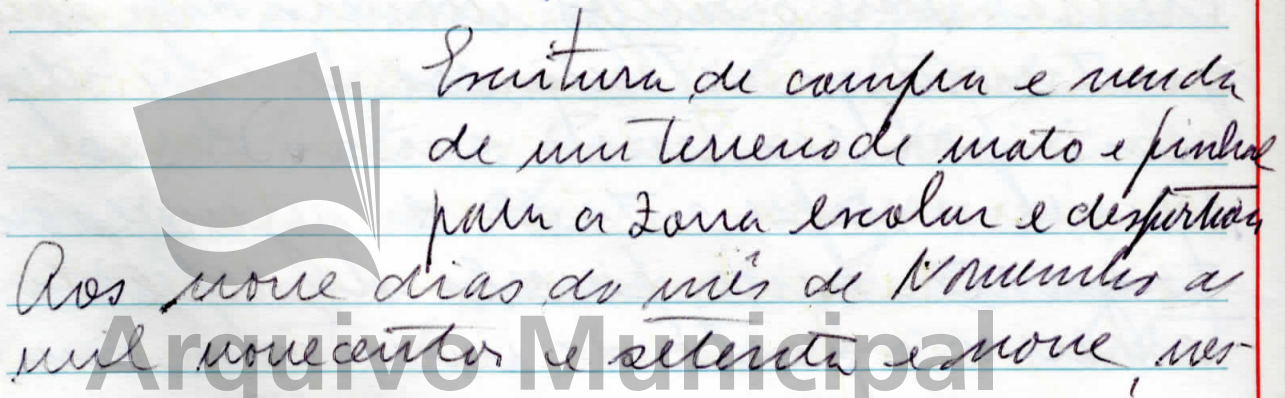 Escritura de compra e venda
de um terreno de mato e pinhal
para a zona escolar e desportiva
Aos nove dias do mês de Novembro de
mil novecentos e setenta e nove, nes-
Arquivo Municipal